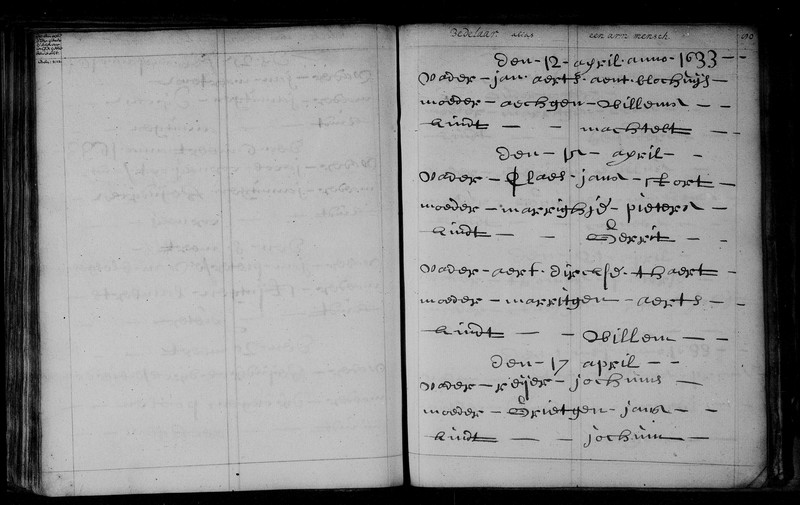 Bedelaar alias een arm mensch
Den - 12 - april - anno - 1633 - -
Vader - jan - aerts - aent - blochuijs -
moeder - aechgen - Willems - -
kindt - - machtelt - -
Den - - april - -
Vader - Claes - jans - Cort -
moeder - marrighje - pieters -
kindt - - Gerrit - -
Vader - aert - dirckse - thaert -
moeder - marritgen - aerts - -
kindt - - Willem - -
Den - 17 april - -
Vader - reijer - jochums -
moeder - Grietgen - jans - -
kindt - - jochum -